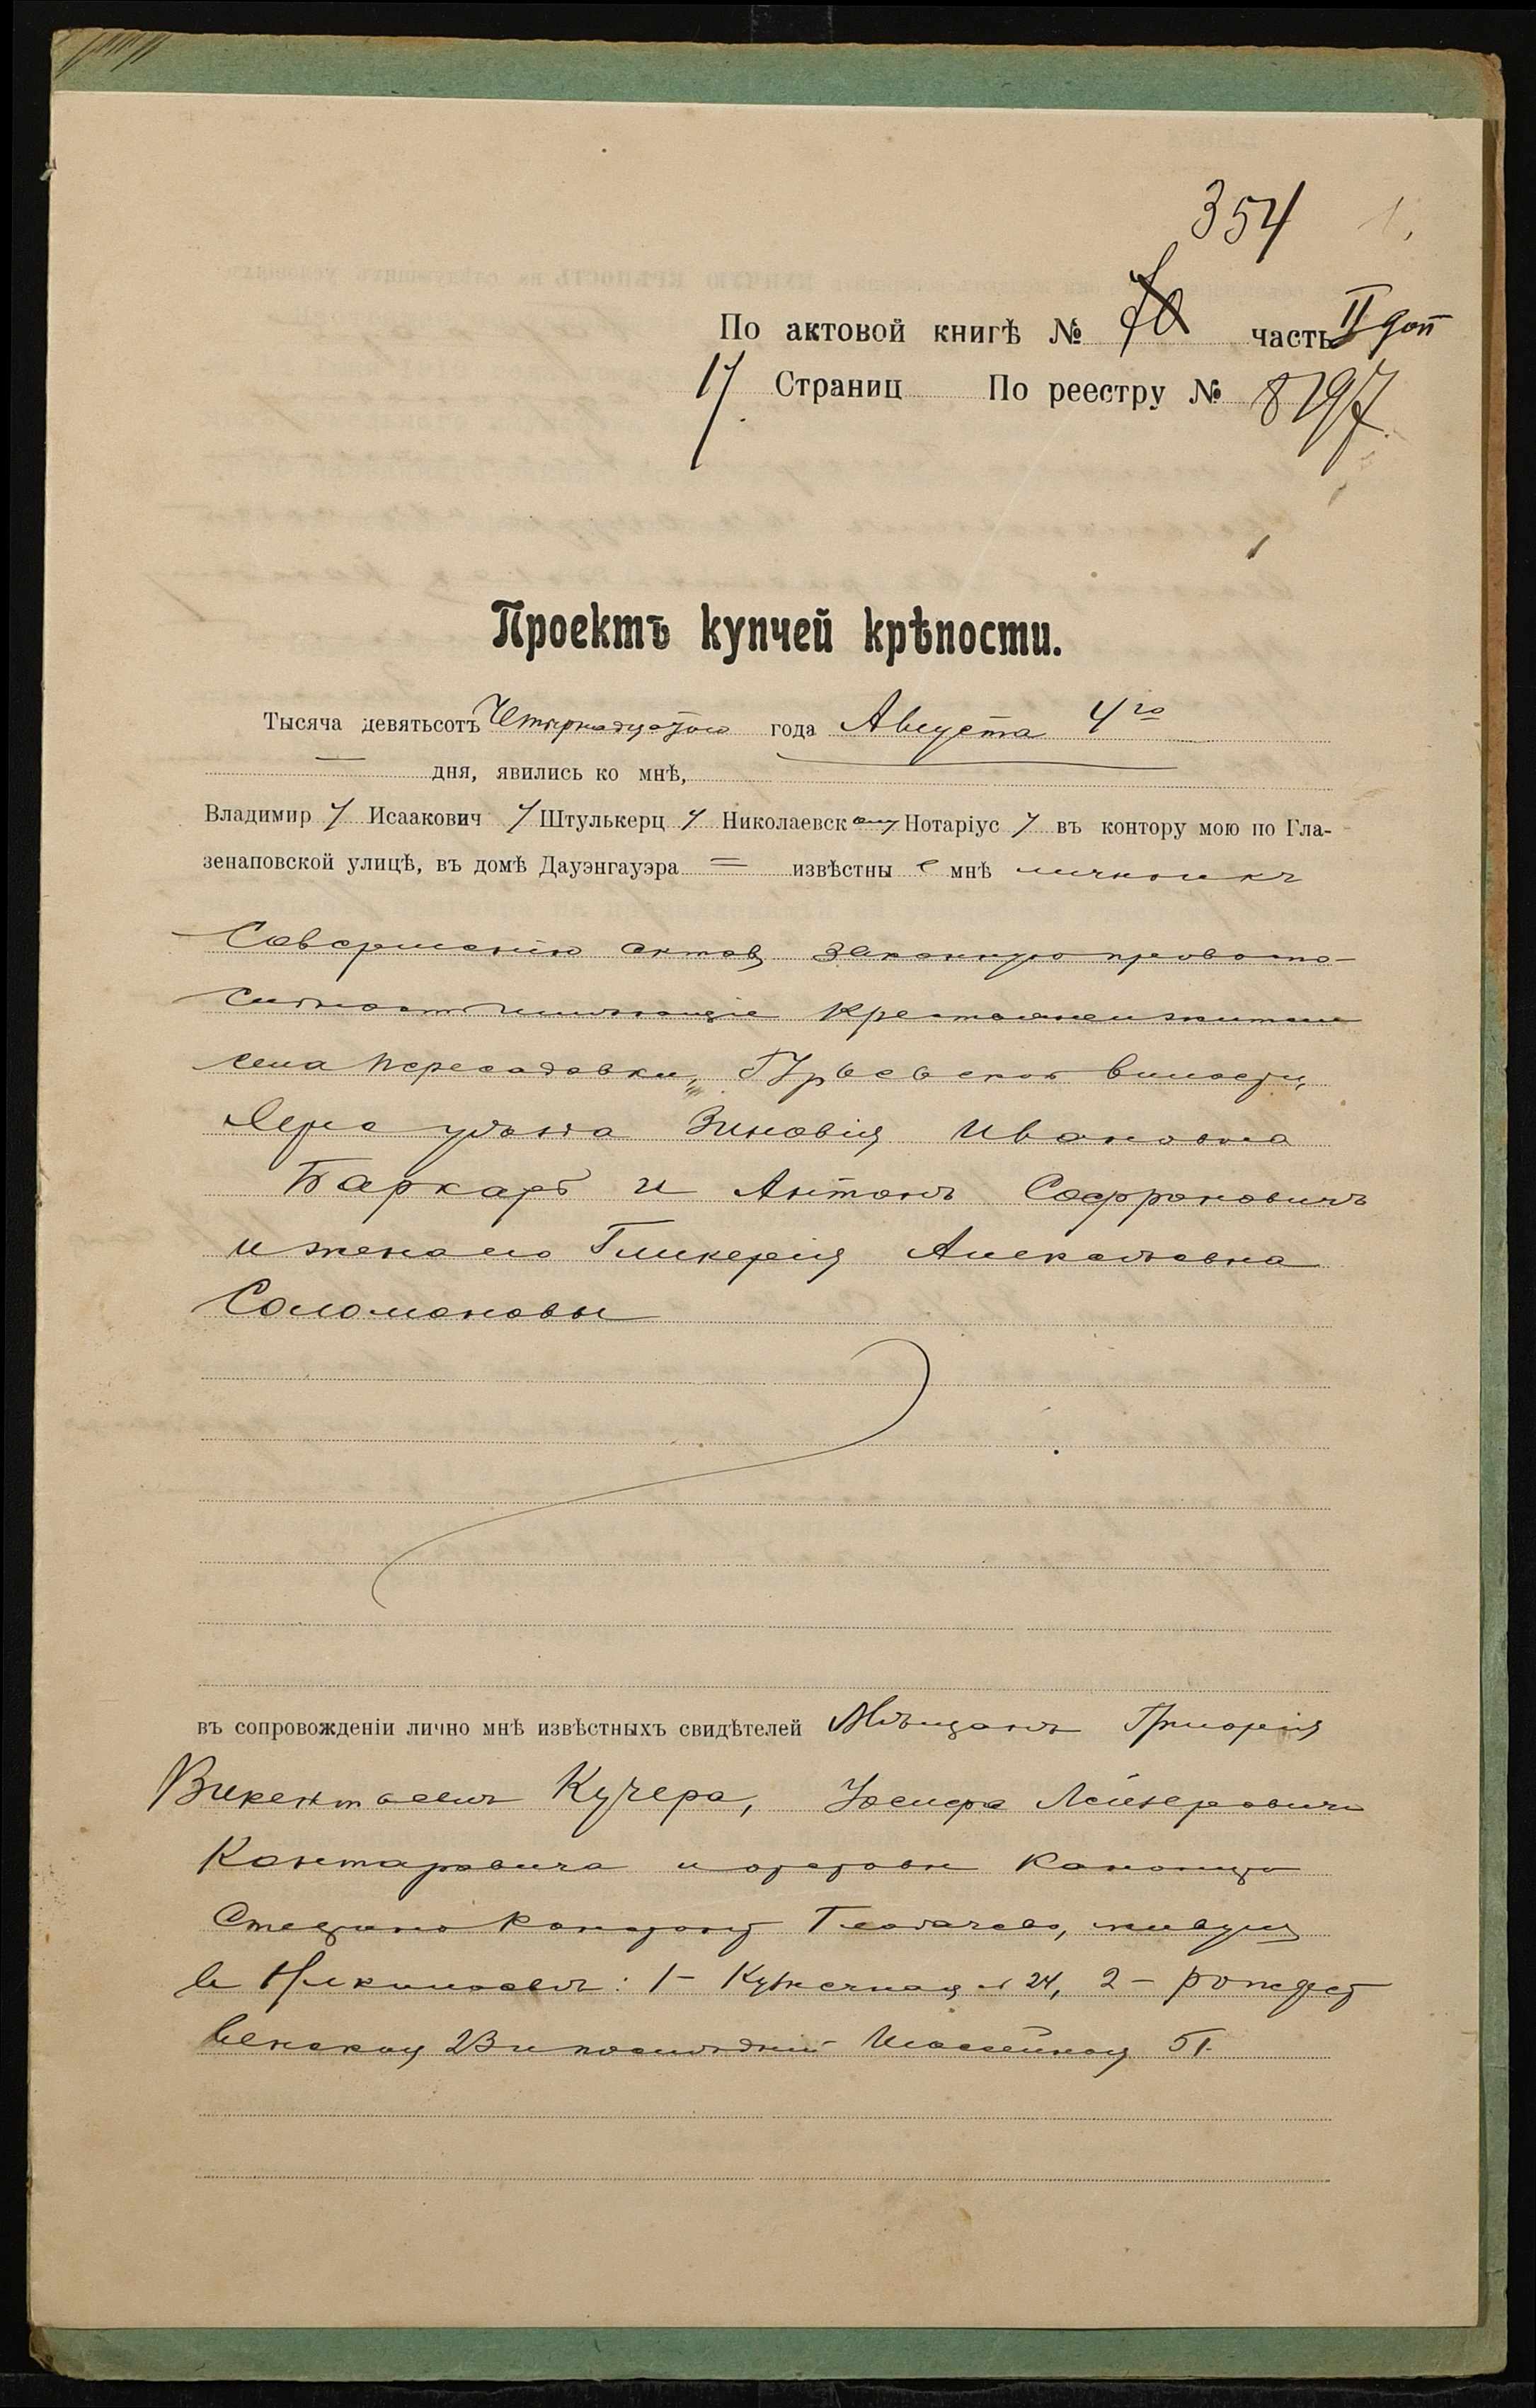 354
По актовой книгѣ № 70 часть II доп
17 Страниц По реестру № 8197
Проектъ купчей крѣпости.
Тысяча девятьсотъ Четырнадцатого года Августа 4го
дня, явились ко мнѣ,
Владимир Исаакович Штулькерц Николаевск ому Нотаріус въ контору мою по Гла-
зенаповской улицѣ, въ домѣ Дауэнгауэра = извѣстны е мнѣ лично и къ
Совершенію актовъ законную правоспо-
собность имѣющіе Крестьяне жители
села Пересадовки, волости,
Зиновія Ивановна
и Антонъ Софроновичъ
и жена его Гликерія Алексѣевна
Соломоновы
въ сопровожденіи лично мнѣ извѣстныхъ свидѣтелей Мѣщанъ Григорія
Викентьевич Кучера, Іосифа Лейзеровича
Канторовича и
живущ
в Николаевѣ: 1- Кузнечная № 24, 2- рождест
венская 23 и послѣдній Шоссейная 51.